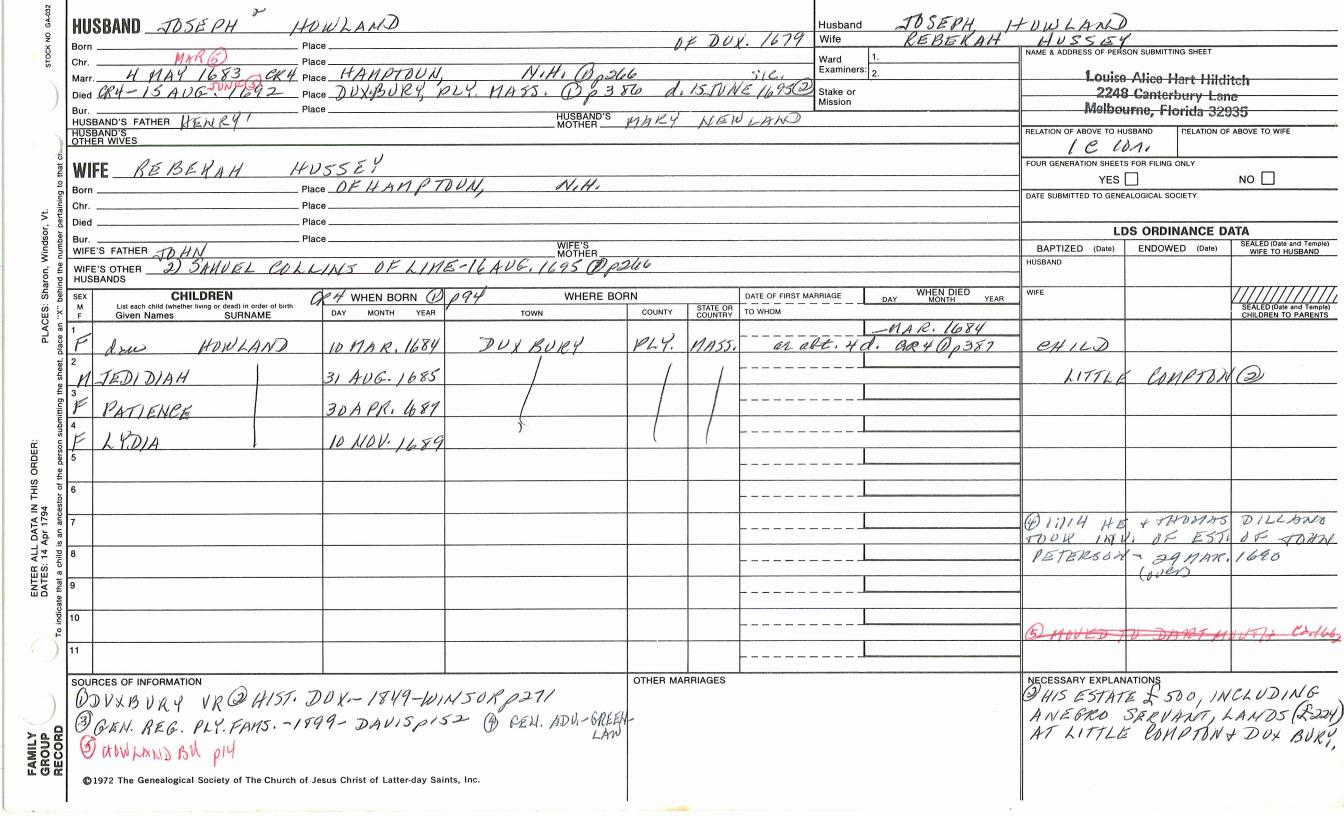 STOCK NO. GA-032
PLACES: Sharon, Windsor, Vt.
ENTER ALL DATA IN THIS ORDER:
DATES: 14 Apr 1794
To indicate that a child is an ancestor of the person submitting the sheet, place an "X" behind the number pertaining to that
FAMILY GROUP RECORD
HUSBAND JOSEPH 2 HOWLAND
Born Place OF DUX. 1679
Chr. Place
MAR ⑤
Marr. 4 MAY 1683 CR4 Place HAMPTOUN, N.H. ① p266 sic.
JUNE ⑤
Died CR4-15 AUG. 1692 Place DUXBURY, PLY. MASS. ① p386 d. 15 JUNE 1695 ②
Bur. Place
HUSBAND'S FATHER HENRY 1 HUSBAND'S MOTHER MARY NEWLAND
HUSBAND'S OTHER WIVES
WIFE REBEKAH HUSSEY
Born Place OF HAMPTOUN, N.H.
Chr. Place
Died Place
Bur. Place
WIFE'S FATHER JOHN WIFE'S MOTHER
WIFE'S OTHER HUSBANDS 2) SAMUEL COLLINS OF LIME-16 AUG. 1695 ① p266
Husband JOSEPH HOWLAND
Wife REBEKAH HUSSEY
Ward Examiners: 1.
2.
Stake or Mission
NAME & ADDRESS OF PERSON SUBMITTING SHEET
Louise Alice Hart Hilditch
2248 Canterbury Lane
Melbourne, Florida 32935
RELATION OF ABOVE TO HUSBAND RELATION OF ABOVE TO WIFE
1 C
FOUR GENERATION SHEETS FOR FILING ONLY
YES NO
DATE SUBMITTED TO GENEALOGICAL SOCIETY
LDS ORDINANCE DATA
BAPTIZED (Date) ENDOWED (Date) SEALED (Date and Temple) WIFE TO HUSBAND
HUSBAND
WIFE
SEALED (Date and Temple) CHILDREN TO PARENTS
SEX M F
CHILDREN
List each child (whether living or dead) in order of birth
Given Names SURNAME
CR4 WHEN BORN ① p94
DAY MONTH YEAR
WHERE BORN
TOWN COUNTY STATE OR COUNTRY
DATE OF FIRST MARRIAGE
TO WHOM
WHEN DIED
DAY MONTH YEAR
1 F dau HOWLAND 10 MAR. 1684 DUXBURY PLY. MASS. - MAR. 1684
or abt. 4 d. CR4 ① p387 CHILD
2 M JEDIDIAH 31 AUG. 1685 LITTLE COMPTON ②
3 F PATIENCE 30 APR. 1687
4 F LYDIA 10 NOV. 1689
5
6
7
8
9
10
11
④ 1:114 HE & THOMAS DILLAND
TOOK INV. OF EST. OF JOHN
PETERSON - 29 MAR. 1690
(over)
⑤ MOVED TO DARTMOUTH
SOURCES OF INFORMATION
① DUXBURY VR ② HIST. DUX.-1849-WINSOR p271
③ GEN. REG. PLY. FAMS.-1899-DAVIS p152 ④ GEN. ADV.-GREENLAW
⑤ HOWLAND p14
OTHER MARRIAGES
NECESSARY EXPLANATIONS
② HIS ESTATE £500, INCLUDING
A NEGRO SERVANT, LANDS (£224)
AT LITTLE COMPTON & DUXBURY.
©1972 The Genealogical Society of The Church of Jesus Christ of Latter-day Saints, Inc.